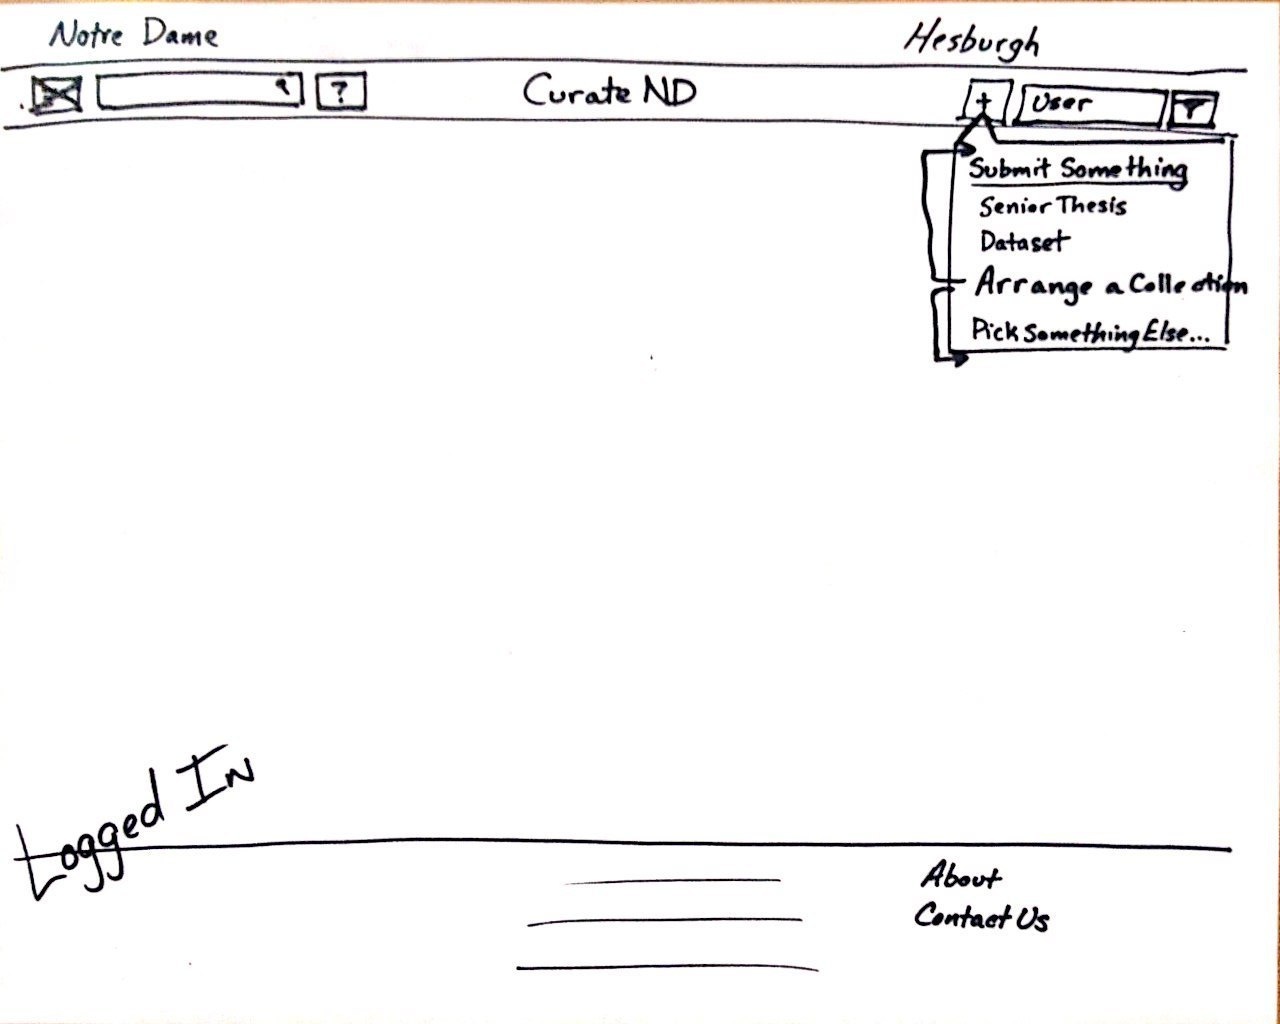 Notre Dame
Hesburgh
?
Curate ND
+
User
Submit Something
Senior Thesis
Dataset
Arrange a Collection
Pick Something Else...
Logged In
About
Contact Us